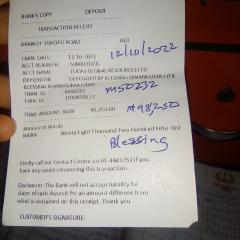 BANK'S COPY DEPOSIT
TRANSACTION RECEIPT
BRANCH: SOKOTO ROAD 043
TRAN. DATE: 12 10 2022 12/10/2022
ACCT NUMBER:
ACCT NAME: LUCAS GLOBAL RESOURCES LTD
DEPOSITOR: DEPOSITED BY BLESSING
BLESSING
TRAN. ID: M50232 M50232
Teller Id:
TRAN AMOUNT: NGN 98,250.00 ₦98,250
Amount in Words Ninety Eight Thousand Two Hundred Fifty Only
NAIRA
Blessing
Kindly call our Contact Centre on 01-4485752 if you
have any issues concerning this transaction.
Disclaimer: The Bank will not accept liability
for claim of cash deposit for an amount different from
what is contained on this receipt. Thank you
CUSTOMER'S SIGNATURE: